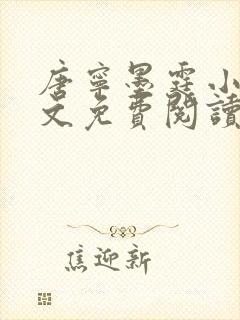 唐寧墨霆小
文免費閱讀
焦迎新